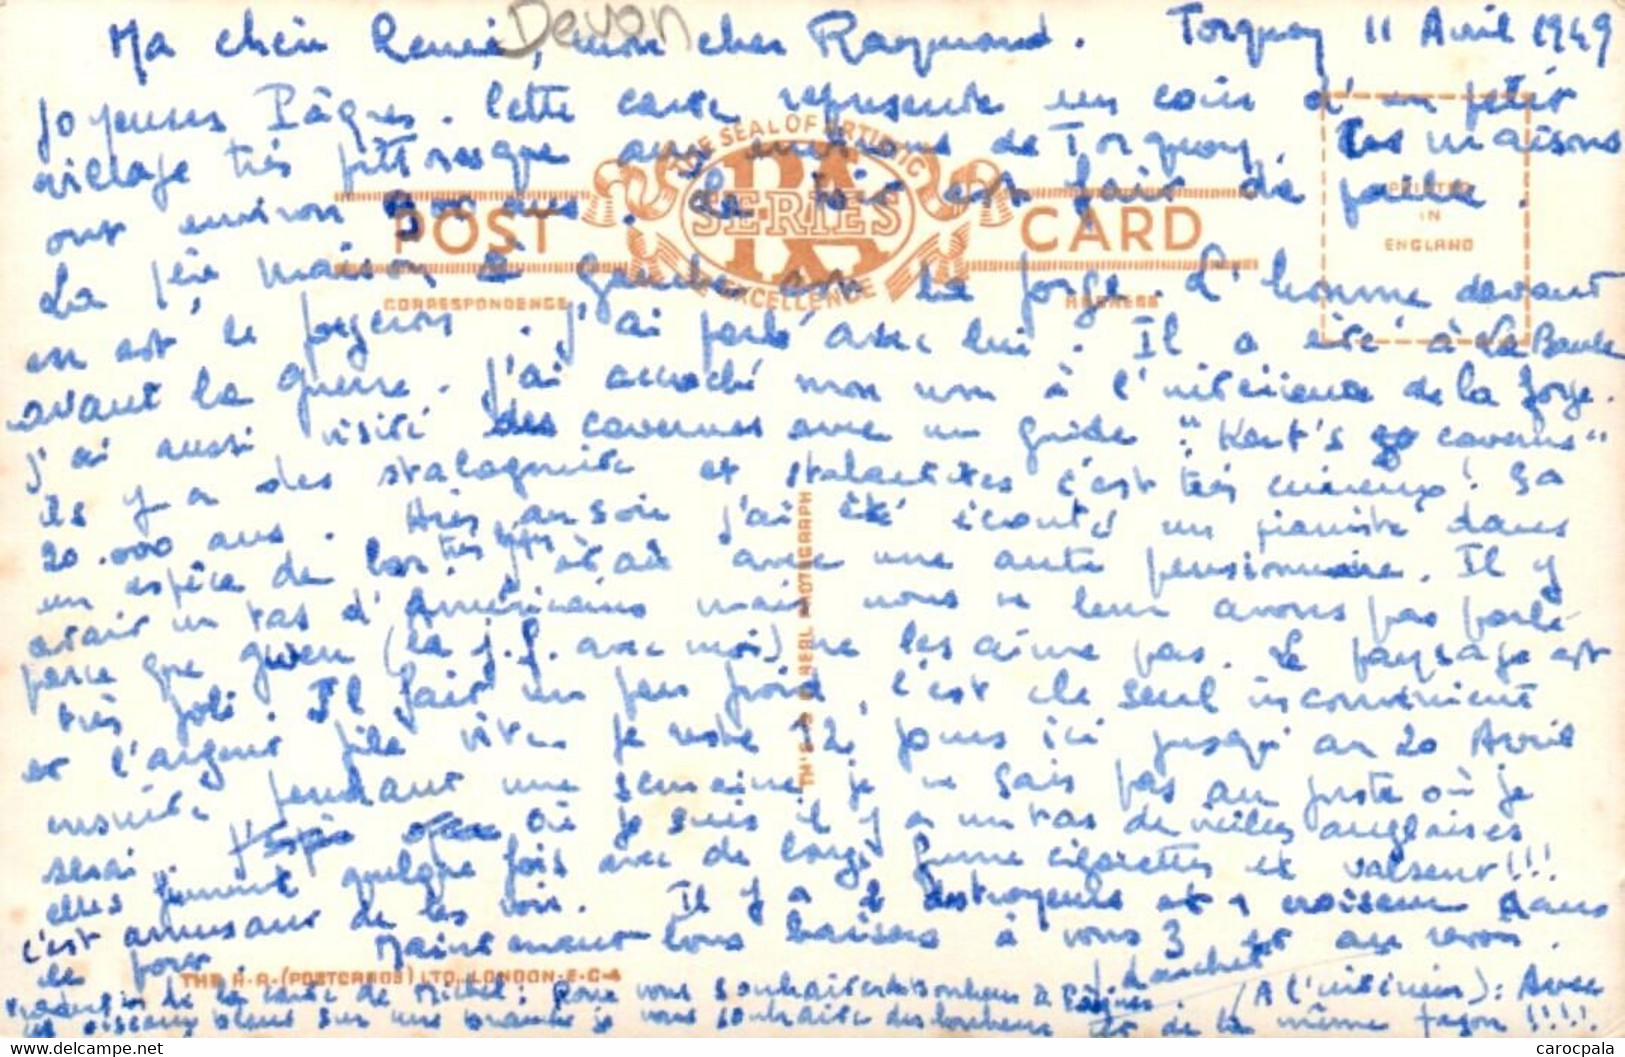 Devon
Ma chère Renée, mon cher Raymond. Torquay 11 Avril 1949
Joyeuses Pâques. Cette carte represente un coin d'un petit
village très pittoresque aux environs de Torquay. Les maisons
ont environ ans. Le toit est fait de paille.
La 1ère maison à gauche est la forge. L'homme devant
en est le forgeron. J'ai parlé avec lui. Il a été à La Baule
avant la guerre. J'ai accroché mon nom à l'intérieur de la forge.
J'ai aussi visité des cavernes avec un guide "Kent's caverns"
ils y a des stalagmite et stalactites c'est très curieux!
20.000 ans. Hier au soir j'ai été écouté un pianiste dans
un espèce de bar très avec une autre pensionnaire. Il y
avait un tas d'Américains mais nous ne leur avons pas parlé
parce que Gwen (la j.f. avec moi) ne les aime pas. Le paysage est
très joli. Il fait un peu froid, c'est le seul inconvénient
et l'argent file vite. Je reste 12 jours ici jusqu'au 20 Avril
ensuite pendant une semaine je ne sais pas au juste où je
serai. où je suis il y a un tas de vieilles anglaises
elles fument quelque fois avec de longs fume cigarettes et valsent!!!
c'est amusant de les voir. Il y a 2 destroyeurs et 1 croiseur dans
le port. Maintenant bons baisers à vous 3 et au revoir.
Blanchet
Traduction de la carte de Michel: Pour vous souhaiter du bonheur à Pâques. (A l'intérieur): Avec
un oiseau bleu sur une branche je vous souhaite du bonheur et de la même façon!!!!
THE SEAL OF ARTISTIC EXCELLENCE
RA SERIES
POST CARD
CORRESPONDENCE
ADDRESS
PRINTED
IN
ENGLAND
THIS IS A REAL PHOTOGRAPH
THE R.A. (POSTCARDS) LTD. LONDON-E-C-4
carocpala